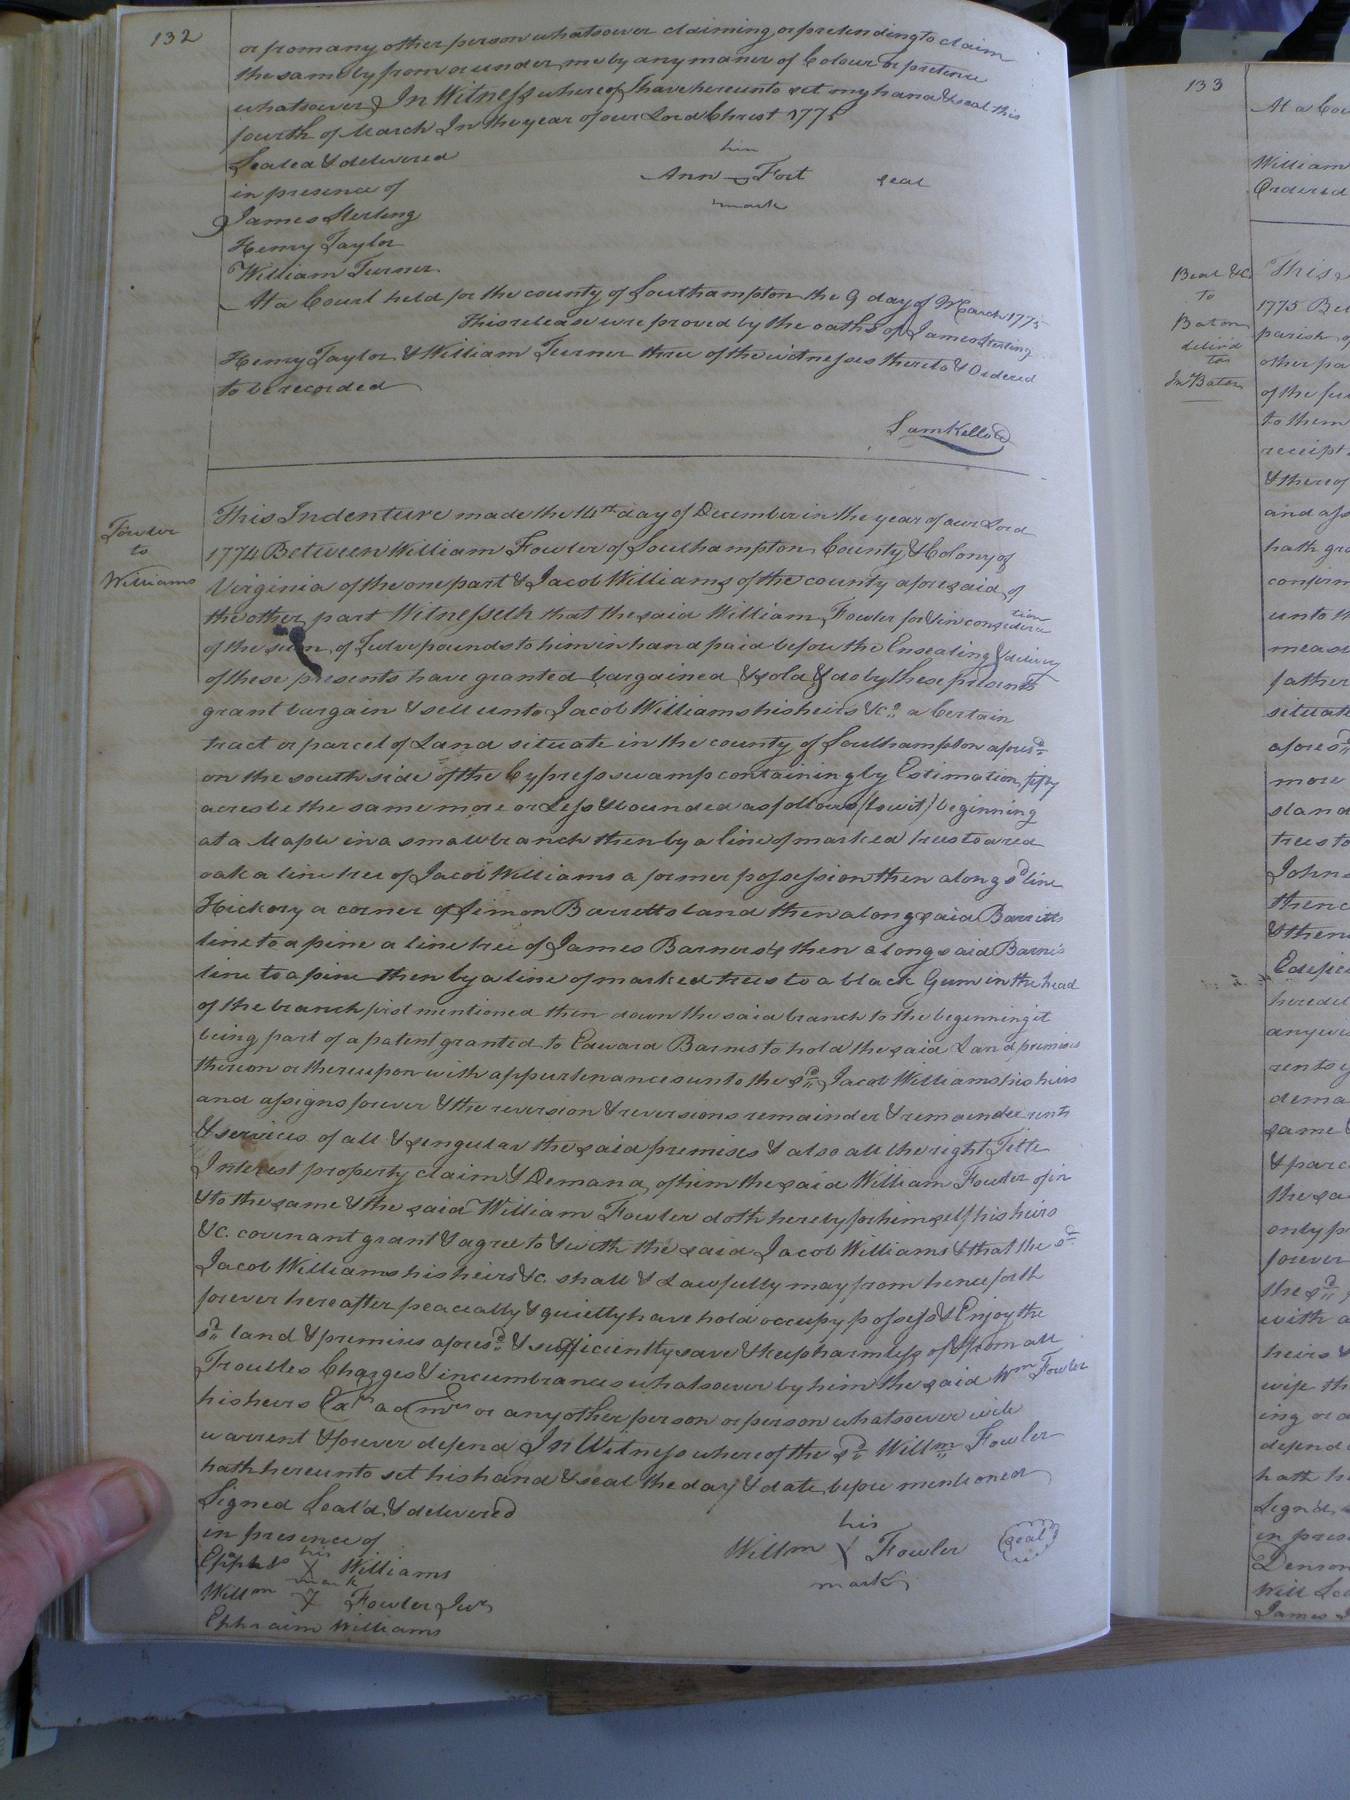 132
or from any other person whatsoever claiming or pretending to claim
the same by from or under me by any maner of Colour or pretence
whatsoever In Witness whereof I have hereunto set my hand & seal this
fourth of March In the year of our Lord Christ 1775
Sealed & delivered
in presence of
James Sterling
Henry Taylor
William Turner
her
Ann Fort seal
mark
At a Court held for the county of Southampton the 9 day of March 1775
This release were proved by the oaths of James Sterling
Henry Taylor & William Turner three of the witnesses thereto & Ordered
to be recorded
Sam Kello
Fowler
to
Williams
This Indenture made the 14th day of December in the year of our Lord
1774 Between William Fowler of Southampton County & Colony of
Virginia of the one part & Jacob Williams of the county aforesaid of
the other part Witnesseth that the said William Fowler for & in consideration
of the sum of Twelve pounds to him in hand paid before the Ensealing & delivery
of these presents have granted bargained & sold & do by these presents
grant bargain & sell unto Jacob Williams his heirs &c a Certain
tract or parcel of Land situate in the county of Southampton afores.d
on the south side of the Cypress swamp containing by Estimation fifty
acres be the same more or Less & bounded as follows (to wit) beginning
at a Maple in a small branch then by a line of marked trees to a red
oak a line tree of Jacob Williams a former possession then along sd line
Hickory a corner of Simon Barretts land then along said Barretts
line to a pine a line tree of James Barneses then along said Barnes
line to a pine then by a line of marked trees to a black Gum in the head
of the branch first mentioned then down the said branch to the beginning it
being part of a patent granted to Edward Barnes to hold the said Land premises
thereon or thereupon with appurtenances unto the sd Jacob Williams his heirs
and assigns forever & the reversion & reversions remainder & remainder rents
& services of all & singular the said premises & also all the right Title
Interest property claim & Demand of him the said William Fowler of in
& to the same & the said William Fowler doth hereby for himself his heirs
&c. covenant grant & agree to & with the said Jacob Williams & that the sd
Jacob Williams his heirs &c shall & Lawfully may from henceforth
forever hereafter peaceably & quietly have hold occupy possess & Enjoy the
sd land & premises aforesd & sufficiently save & keep harmless of & from all
Troubles Charges & incumbrances whatsoever by him the said Wm Fowler
his heirs Exrs admrs or any other person or person whatsoever will
warrent & forever defend In Witness whereof the sd Willm Fowler
hath hereunto set his hand & seal the day & date before mentioned
Signed Seal'd & delivered
in presence of
his
X Williams
mark
Willm X Fowler Junr
Ephraim Williams
his
Willm X Fowler seal
mark
133
At a Cou
William
Ordered
Beal &c.
to
Baton
deliv'd
to
Jn Baton
This
1775 Bet
parish of
other pa
of the
to them
receipt
& thereof
and ass
hath gra
confirm
unto th
meas
father
situate
aforesd
more
stand
trees to
John
thence
& then
Edific
hered
any wi
rents
dema
same &
& parc
the sa
only p
forever
the sd
with a
heirs &
wife th
ing or
defend
hath h
Signd
in pres
Denson
Will
James